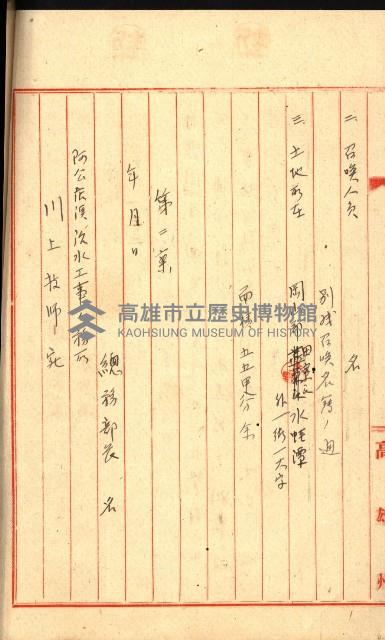 二、召喚人員　名
別紙召喚名簿ノ通
三、土地所在　岡山郡田寮庄水蛙潭
外一街一大字
面積　五五甲分余
第二案
年月日
總務部長　名
阿公店溪治水工事事務所
川上技師宛
高雄州
高雄市立歷史博物館
KAOHSIUNG MUSEUM OF HISTORY